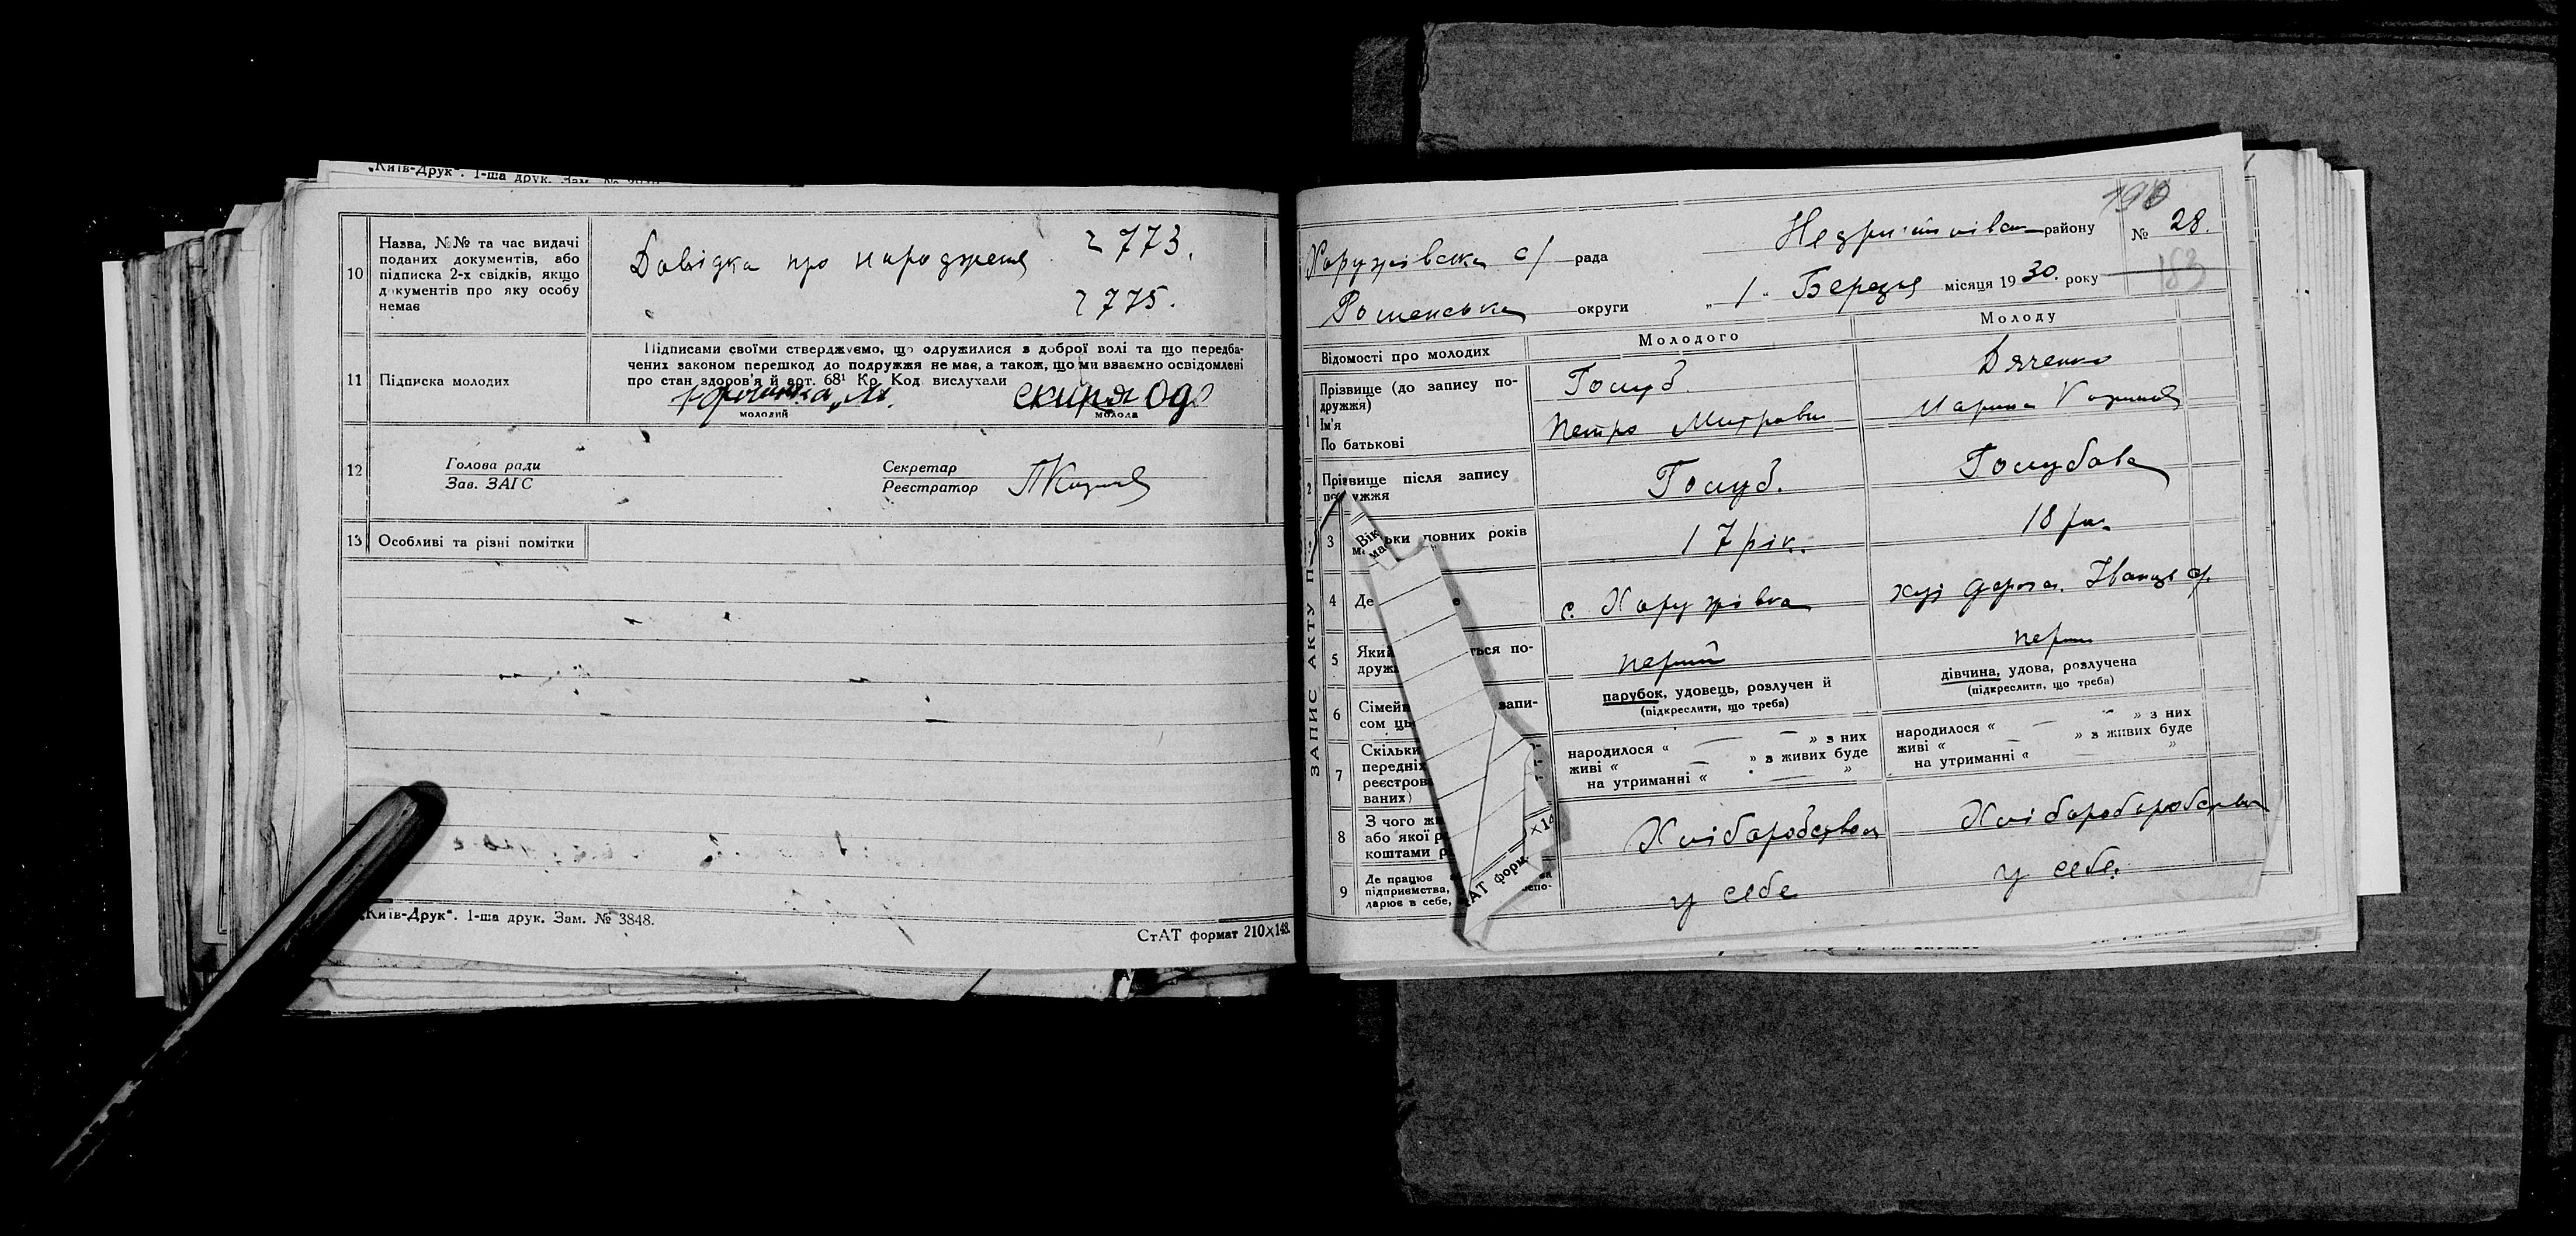 „Київ-Друк". 1-ша друк. Зам. №
10 Назва, №№ та час видачі поданих документів, або підписка 2-х свідків, якщо документів про яку особу немає
Довідка про народження 2773.
2775.
Підписами своїми стверджуємо, що одружилися з доброї волі та що передба-
чених законом перешкод до подружжя немає, а також, що ми взаємно освідомлені
11 Підписка молодих
про стан здоров'я й арт. 68¹ Кр. Код вислухали
скиря Одо
молодий молода
12 Голова ради Секретар
Зав. ЗАГС Реєстратор
13 Особливі та різні помітки
„Київ-Друк". 1-ша друк. Зам. № 3848.
СтАТ формат 210×148.
190
Хоружівська с/ рада Недригайлівськ району № 28.
Роменська округи „ 1 " Березня місяця 1930. року 183
Відомості про молодих Молодого Молоду
ЗАПИС АКТУ П
1 Прізвище (до запису по-
дружжя) Голуб Дяченко
Ім'я
По батькові Петро Митрович Марина
2 Прізвище після запису
подружжя Голуб. Голубова
3 Вік
ма ьки повних років 17 рік. 18 рік
4 Де с. Хоружівка хут
5 Який ться по-
друж перший перш
6 Сімейн запи-
сом ць
парубок, удовець, розлучений дівчина, удова, розлучена
(підкреслити, що треба) (підкреслити, що треба)
7 Скільки
передніх
реєстров
ваних)
народилося « — » з них народилося « — » з них
живі « — » з живих буде живі « — » з живих буде
на утриманні « — » на утриманні « — »
8 З чого жи
або якої р
коштами р
Хліборобством Хлібороборобством
9 Де працює
підприємства,
ларює в себе, спо-
у себе у себе.
АТ форм ×14